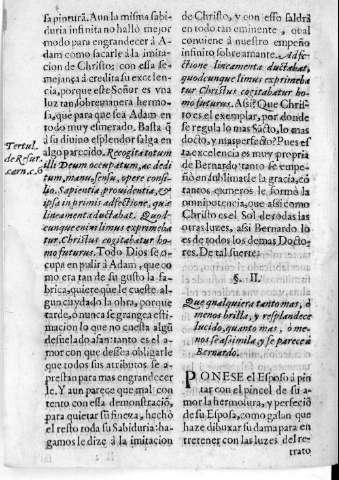 sa pintura. Aun la misma sabi-
duria infinita no hallò mejor
modo para engrandecer à A-
dam como sacarle à la imita-
cion de Christo; con essa se-
mejança à credita su excelen-
cia, porque este Señor es vna
luz tan sobremanera hermo-
sa, que para que sea Adam en
todo muy esmerado. Basta q̃
à su diuino esplendor salga en
algo parecido. Recogita totum
illi Deum occupatum, ac dedi-
tum, manu, sensu, opere consi-
lio. Sapientia prouidentia, &
ipsa inprimis adfectione, quæ
lineamenta ductabat. Quod-
cunque enim limus exprimeba-
tur. Christus cogitabatur ho-
mo futurus. Todo Dios se o-
cupa en pulir à Adam, que co
mo era tan de su gusto la fa-
brica, quiere que le cueste al-
gun cuydado la obra, porque
tarde, ò nunca se grangea esti-
macion lo que no cuesta algũ
desuelado afan: tanto es el a-
mor con que dessea obligarle
que todos sus atributos se a-
prestan para mas engrandecer
le. Y aun parece que mal con-
tento con essa demonstració,
para quietar su fineza, hechò
el resto toda su Sabiduria: ha-
gamosle dize à la imitacion
Tertul.
de Resur.
carn. c. 6
de Christo, y con esso saldrà
en todo tan eminente, qual
conviene à nuestro empeño
infinito sobre amante. Adfe-
ctione lineamenta ductabat,
quodcunque limus exprimeba
tur Christus cogitabatur ho-
mo futurus. Assi? Que Chris-
to es el exemplar, por donde
se regula lo mas Sãcto, lo mas
docto, y mas perfecto? Pues es
ta excelencia es muy propria
de Bernardo: tanto se empe-
ñò en sublimarle la gracia, cõ
tantos esmeros le formò la
omnipotencia, que assi como
Christo es el Sol de todas las
otras luzes, assi Bernardo lo
es de todos los demas Docto-
res. De tal suerte,
§. II.
Que qualquiera tanto mas, ò
menos brilla, y resplandece
lucido, quanto mas, ò me-
nos se assimila, y se parece à
Bernardo.
PONESE el Esposo à pin
tar con el pincel de su a-
mor la hermosura, y perfeciõ
de su Esposa, como galan que
haze dibuxar su dama para en-
tretener con las luzes del re-
trato